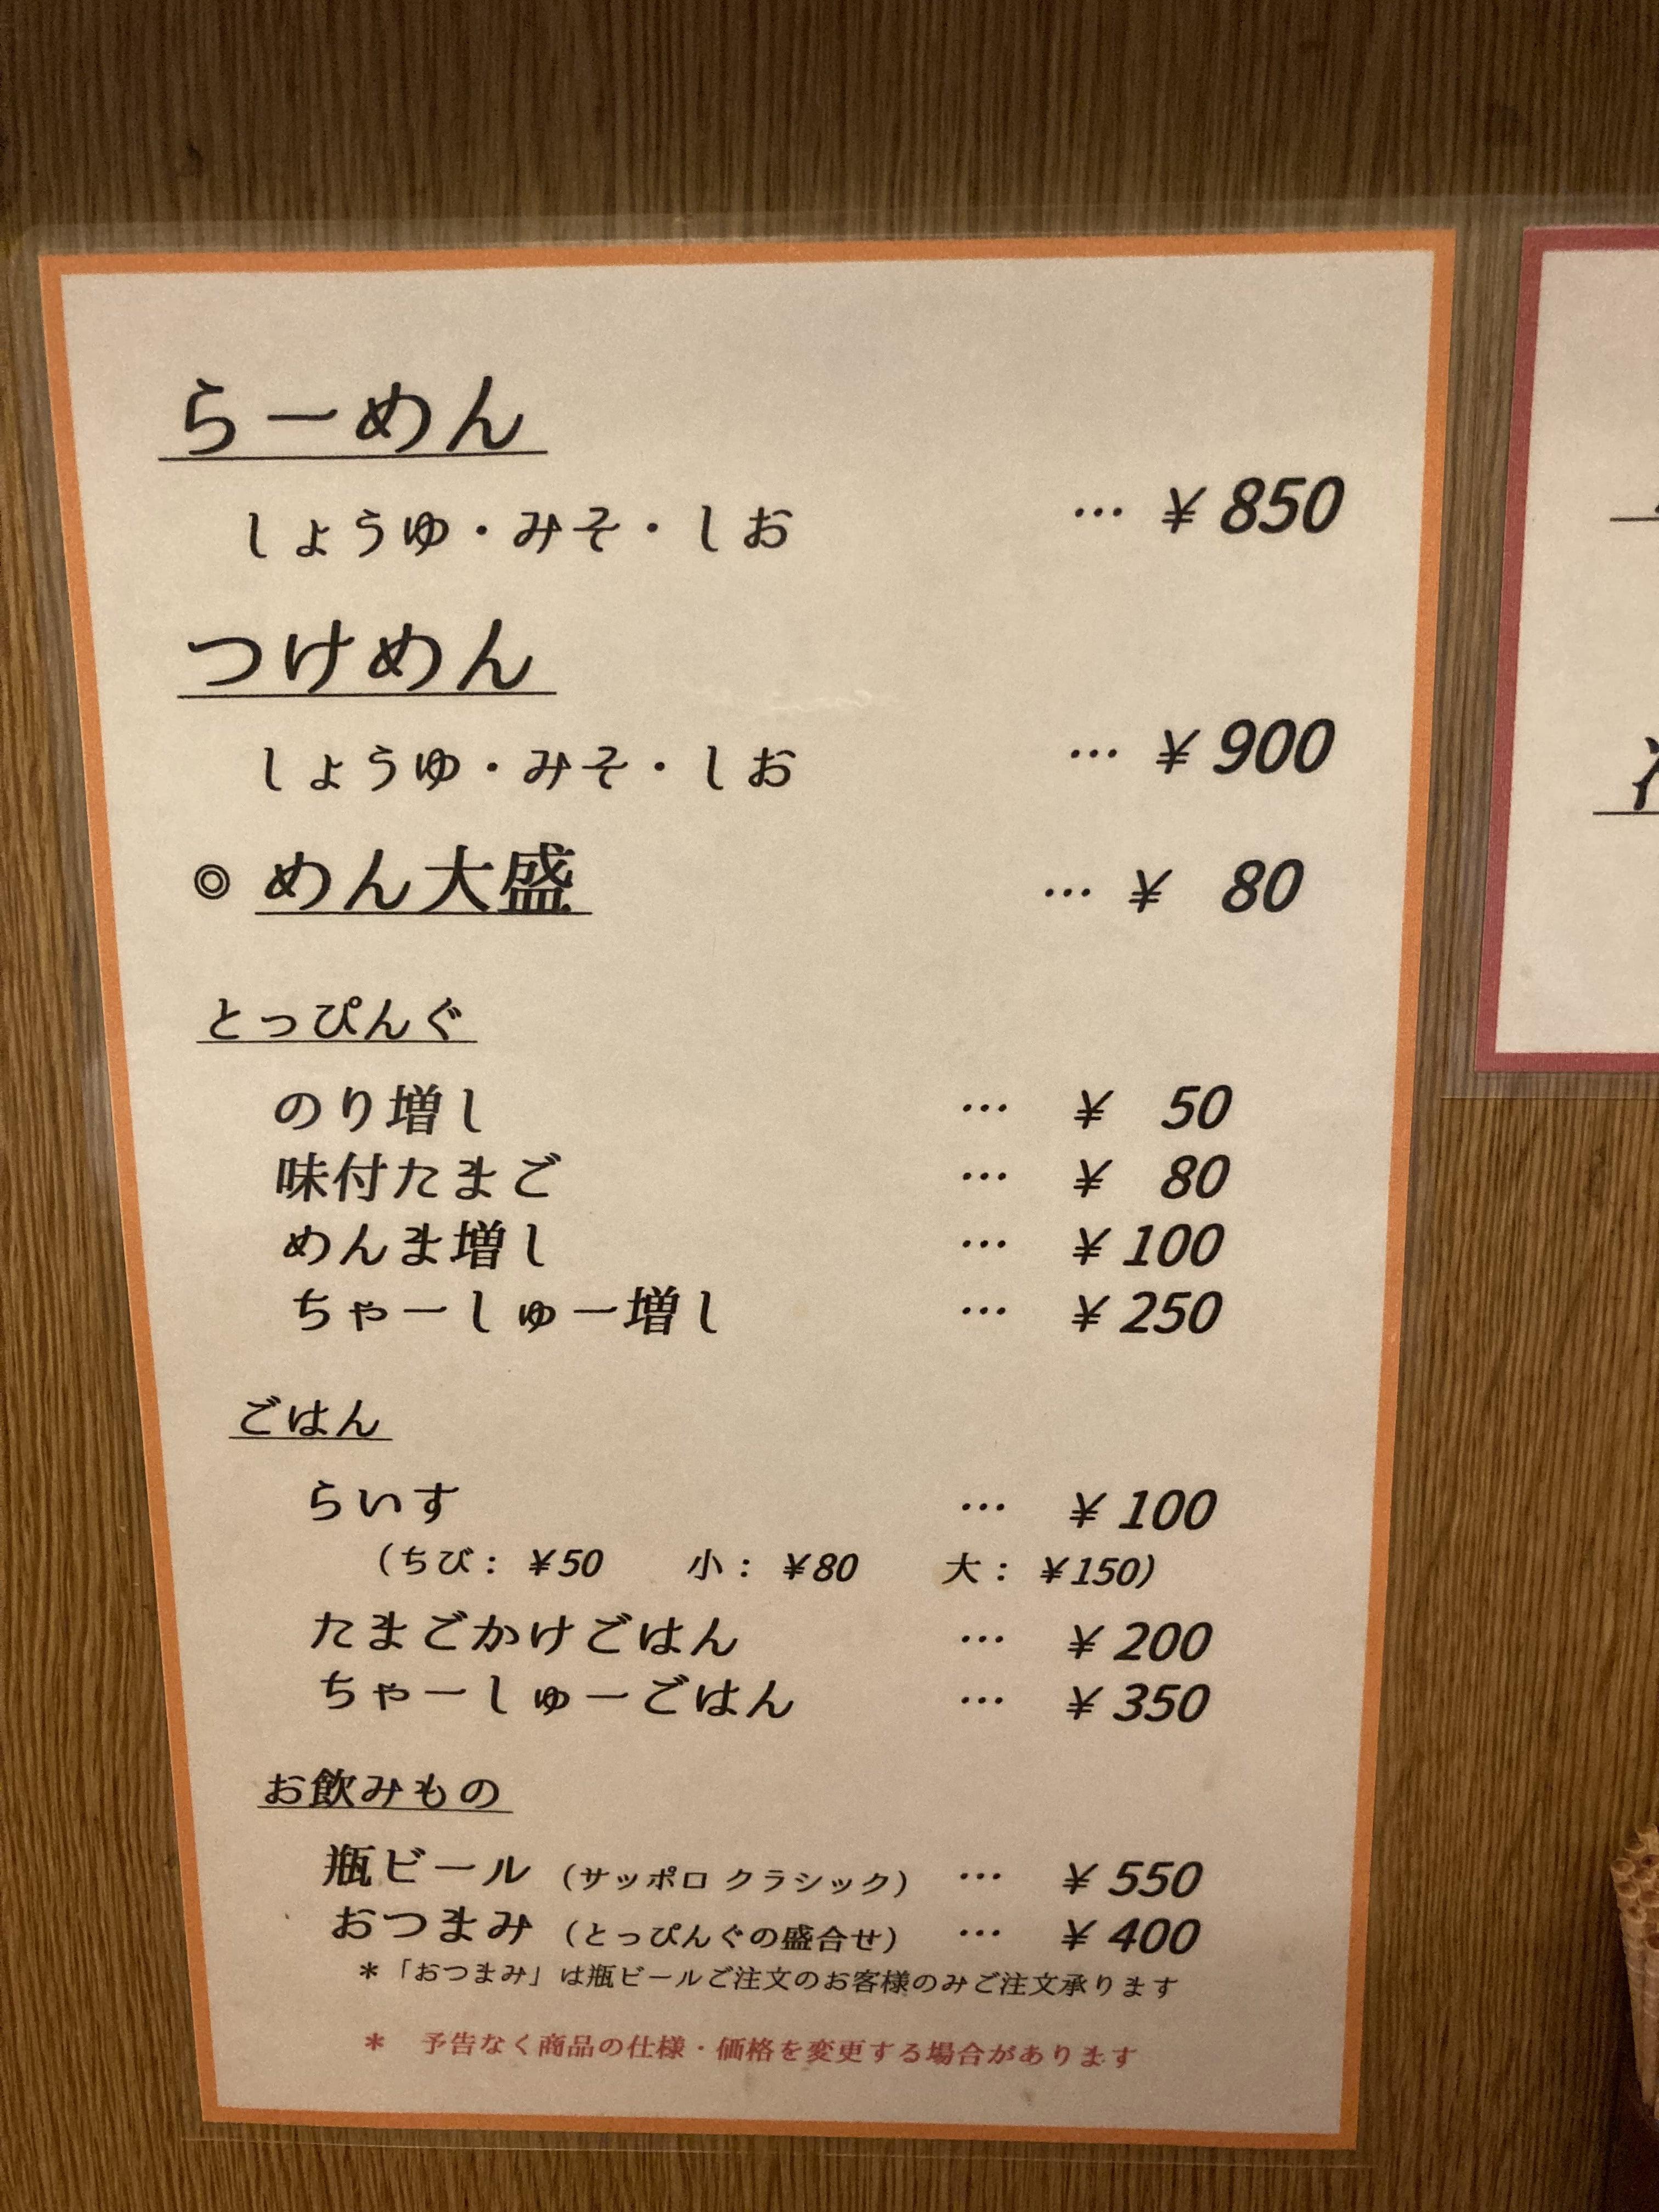 らーめん
しょうゆ・みそ・しお … ￥850
つけめん
しょうゆ・みそ・しお … ￥900
◎ めん大盛 … ￥ 80
とっぴんぐ
のり増し … ￥ 50
味付たまご … ￥ 80
めんま増し … ￥100
ちゃーしゅー増し … ￥250
ごはん
らいす … ￥100
（ちび： ￥50 小： ￥80 大： ￥150）
たまごかけごはん … ￥200
ちゃーしゅーごはん … ￥350
お飲みもの
瓶ビール （サッポロ クラシック） … ￥550
おつまみ （とっぴんぐの盛合せ） … ￥400
＊「おつまみ」は瓶ビールご注文のお客様のみご注文承ります
＊ 予告なく商品の仕様・価格を変更する場合があります